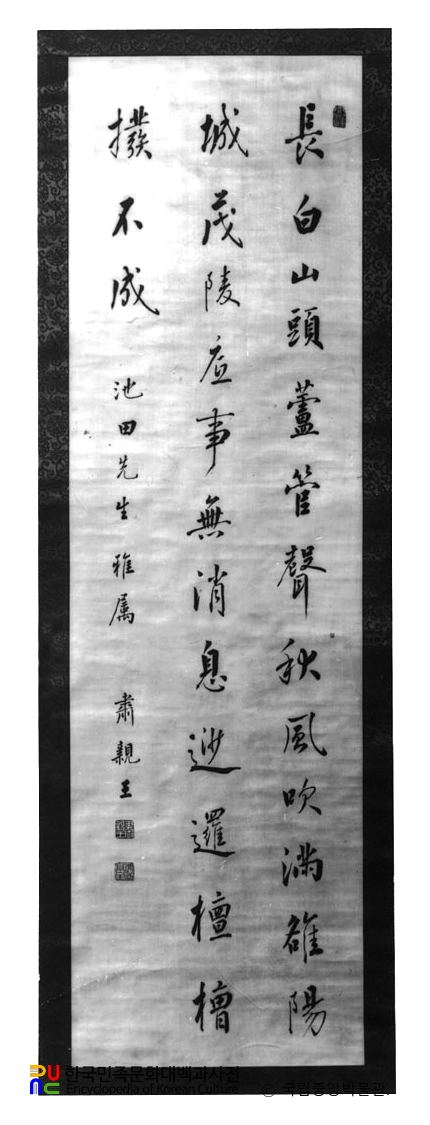 長白山頭蘆管聲秋風吹滿雒陽
城茂陵底事無消息逤邏檀槽
撥不成 池田先生雅属 肅親王
한국민족문화대백과사전
Encyclopedia of Korean Culture
ⓒ 국립중앙박물관.